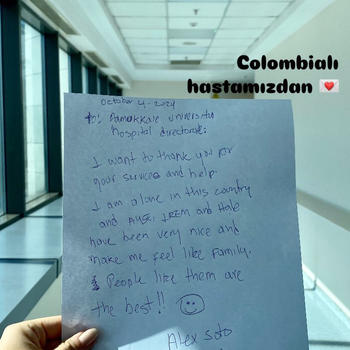 Colombialı
hastamızdan
October 4-2024
to: Pamukkale universitu
hospital directorate:
I want to thank you for
your services and help.
I am alone in this country
and AYSE, IREM and Hale
have been very nice and
make me feel like Family.
People like them are
the best!!
Alex Soto